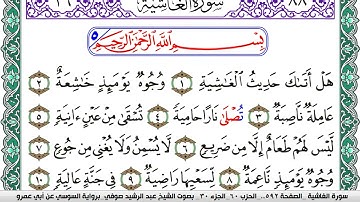 سورة الغاشية
٨٨
٥ بِسْمِ اللَّهِ الرَّحْمَٰنِ الرَّحِيمِ
هَلْ أَتَىٰكَ حَدِيثُ الْغَٰشِيَةِ ١ وُجُوهٌ يَوْمَئِذٍ خَٰشِعَةٌ ٢
عَامِلَةٌ نَّاصِبَةٌ ٣ تُصْلَىٰ نَارًا حَامِيَةً ٤ تُسْقَىٰ مِنْ عَيْنٍ ءَانِيَةٍ ٥
لَّيْسَ لَهُمْ طَعَامٌ إِلَّا مِن ضَرِيعٍ ٦ لَّا يُسْمِنُ وَلَا يُغْنِي مِن جُوعٍ ٧
وُجُوهٌ يَوْمَئِذٍ نَّاعِمَةٌ ٨ لِّسَعْيِهَا رَاضِيَةٌ ٩ فِي جَنَّةٍ عَالِيَةٍ ١٠
سورة الغاشية . الصفحة ٥٩٢ . الحزب ٦٠ . الجزء ٣٠ . بصوت الشيخ عبد الرشيد صوفي . برواية السوسي عن أبي عمرو